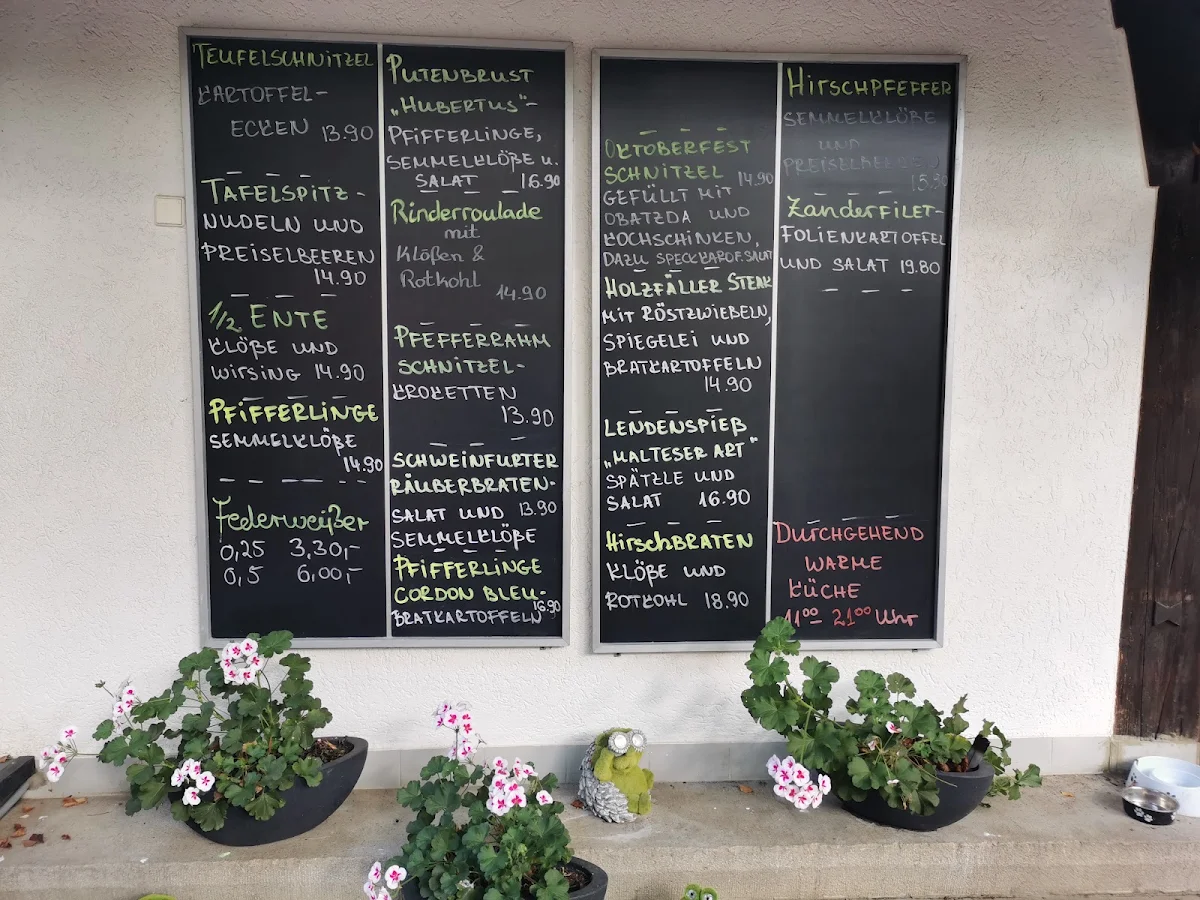 TEUFELSCHNITZEL
KARTOFFEL-
ECKEN 13.90
TAFELSPITZ-
NUDELN UND
PREISELBEEREN
14.90
1/2 ENTE
KLÖßE UND
WIRSING 14.90
PFIFFERLINGE
SEMMELKLÖßE
14.90
Federweißer
0,25 3,30,-
0,5 6,00,-
PUTENBRUST
„HUBERTUS"-
PFIFFERLINGE,
SEMMELKLÖßE u.
SALAT 16.90
Rinderroulade
mit
Klößen &
Rotkohl
14.90
PFEFFERRAHM
SCHNITZEL-
KROKETTEN
13.90
SCHWEINFURTER
RÄUBERBRATEN-
SALAT UND 13.90
SEMMELKLÖßE
PFIFFERLINGE
CORDON BLEU-
16.90
BRATKARTOFFELN
OKTOBERFEST
SCHNITZEL 14.90
GEFÜLLT MIT
OBATZDA UND
KOCHSCHINKEN,
DAZU SPECKKAROF.SALAT
HOLZFÄLLER STEAK
MIT RÖSTZWIEBELN,
SPIEGELEI UND
BRATKARTOFFELN
14.90
LENDENSPIEß
„MALTESER ART"
SPÄTZLE UND
SALAT 16.90
HIRSCHBRATEN
KLÖßE UND
ROTKOHL 18.90
HIRSCHPFEFFER
SEMMELKLÖßE
UND
PREISELBEEREN
ZANDERFILET-
FOLIENKARTOFFEL
UND SALAT 19.80
DURCHGEHEND
WARME
KÜCHE
11⁰⁰ - 21⁰⁰ Uhr